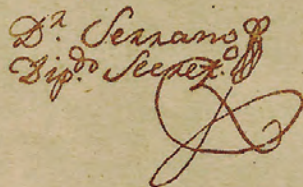 Dr. Serrano
Dip.do Secret.o